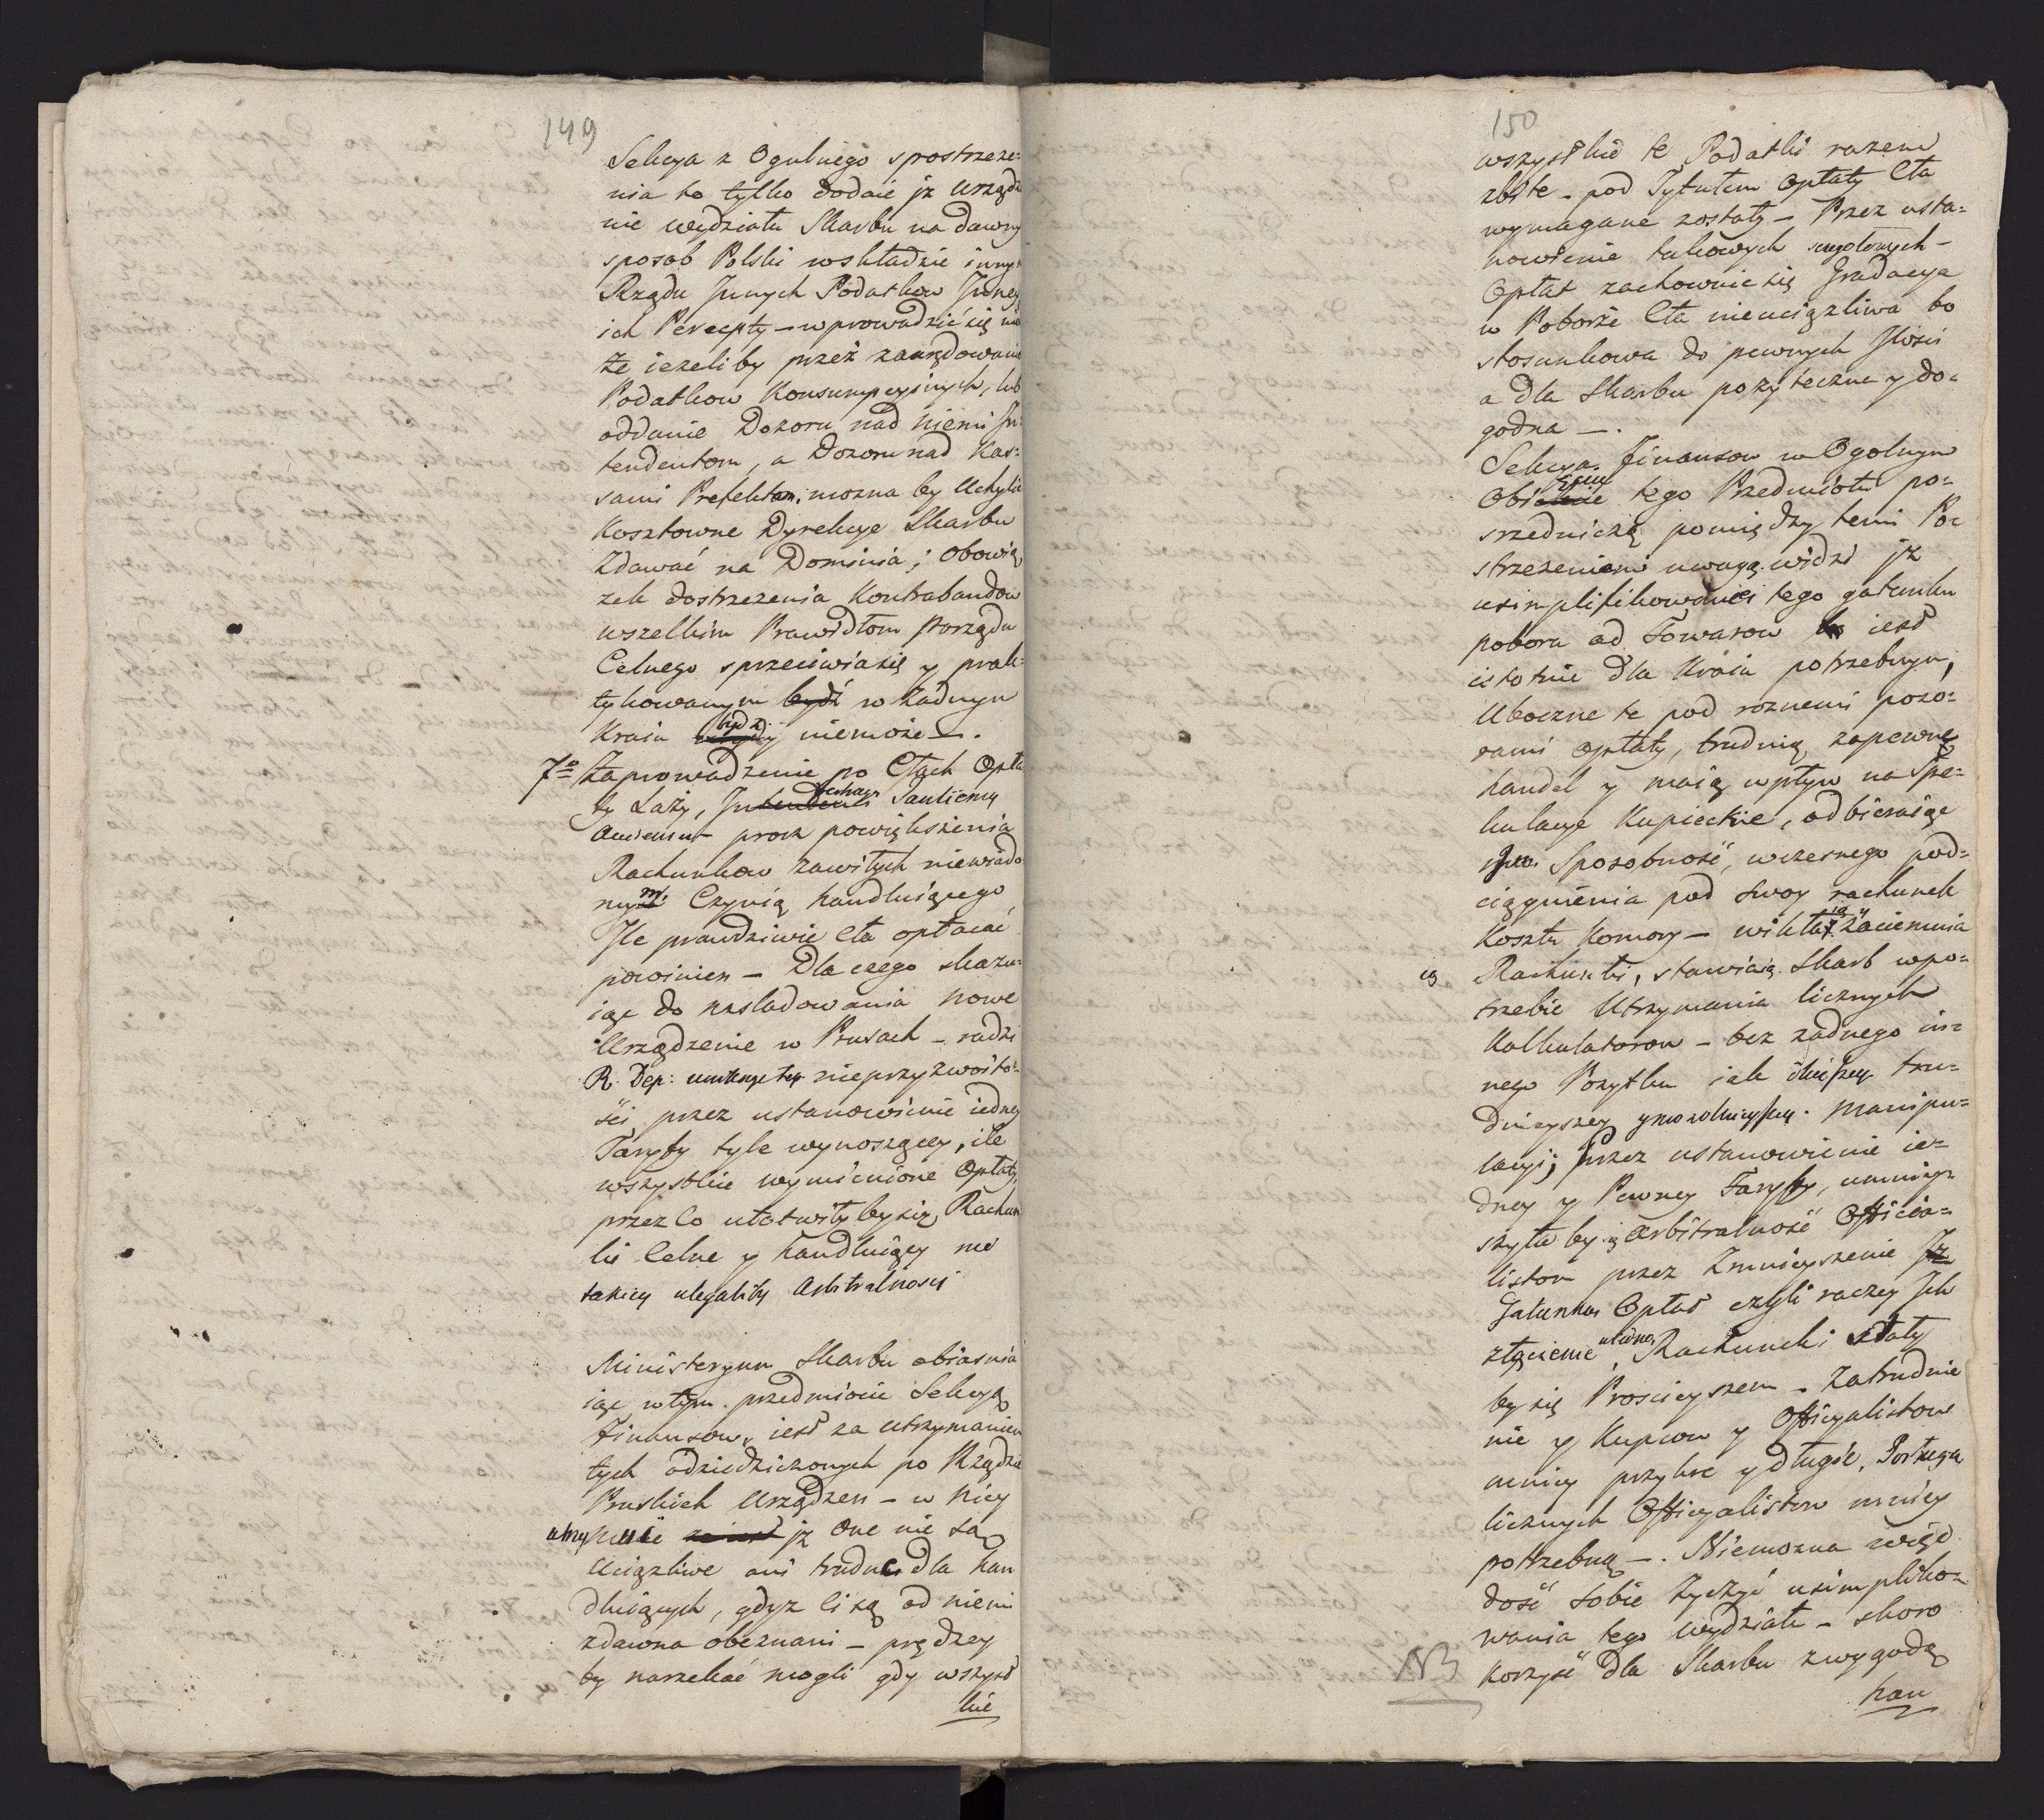 149
Sekcya z Ogulnego spostrzeze=
nia to tylko dodaie jz Urządze
nie wydziału Skarbu na dawny
sposob Polski wskładzie innym
Rządu Jnnych Podatkow Jnney
ich Percepty – wprowadzić się nie
że iezeli by przez zarządowanie
Podatkow Konsumpcyinych, lub
oddanie Dozoru nad niemi Jn=
tendentom, a Dozoru nad Kas=
sami Prefektom, mozna by Uchylić
Kosztowne Dyrekcye Skarbu
Zdawać na Dominia; Obowią
zek dostrzezenia Kontrabandow
wszelkim Prawidłom porządu
Celnego sprzeciwia się y prak=
tykowanym bydź w żadnym
Kraiu bydz niemoże –.
7o Zaprowadzenie po Cłach Opła
ty Laży, Tantiemy
Auciensu – procz powiększenia
Rachunkow zawiłych niewiado
mym Czynią handluiącego
Jle prawdziwie Cła opłacać
powinien – Dla czego skazu=
iąc do nasladowania nowe
Urządzenie w Prusach – radzi
R. Dep: nieprzyzwoito=
ści przez ustanowienie iedney
Taryfy tyle wynoszącey, ile
wszystkie wymienione Opłaty,
przez Co ułatwiły by się Rachun
ki Celne y handluiący nie
takiey ulegaliby Arbitralnosci
Ministeryum Skarbu obiasnia
iąc w tym przedmiocie Sekcyą
Finansow, iest za utrzymaniem
tych odziedziczonych po Rządzie
Pruskich Urządzen – w niey
jz One nie są
Uciązliwe ani trudne dla han
dluiących, gdyz Ci są od niemi
zdawna obeznani – prędzey
by narzekać mogli gdy wszyst
kie
150
wszystkie te Podatki razem
zbite – pod Tytułem Opłaty Cła
wymagane zostały – Przez usta=
nowienie takowych szegolnych –
Opłat zachowuie się Gradacya
w Poborże Cła nieuciązliwa bo
stosunkowa do pewnych Jlości
a dla Skarbu pozyteczna y do=
godna –.
Sekcya Finansow w Ogolnym
tego Przedmiotu po=
srzednicką pomiędzy temi Po=
strzezeniem uwagą widzi jz
usimplifikowanie tego gatunku
poboru od Towarow iest
istotnie dla Kraiu potrzebnym,
Uboczne te pod roznemi pozo=
rami opłaty, trudnią zapewne
handel y maią wpływ na Spe=
kulacye Kupieckie, odbieraiąc
Sposobność, wczesnego pod=
ciągnienia pod swoy rachunek
Kosztu Komory – wikłaią y Zaciemnia
ią Rachunki, stawiaią Skarb wpo=
trzebie Utrzymania licznych
Kalkulatorow – bez zadnego in=
nego Pozytku iak tru=
dnieyszey manipu=
lacyi; Przez ustanowienie ie=
dney y Pewney Taryfy, umniey=
szyła by się arbitralność Officia=
listow przez Zmnieyszenie
Gatunkow Opłat czyli raczey Jch
złączenie w iedno, Rachunki stały
by się Prosciejszem – Zatrudnie
nie y Kupcow y Officyalistow
mniey przykre y długie,
licznych Officyalistow mniey
potrzebną –. Niemozna więc
dość sobie życzyć usimpliko=
wania tego wydziału – skoro
NB Korzyść dla Skarbu z wygodą
han